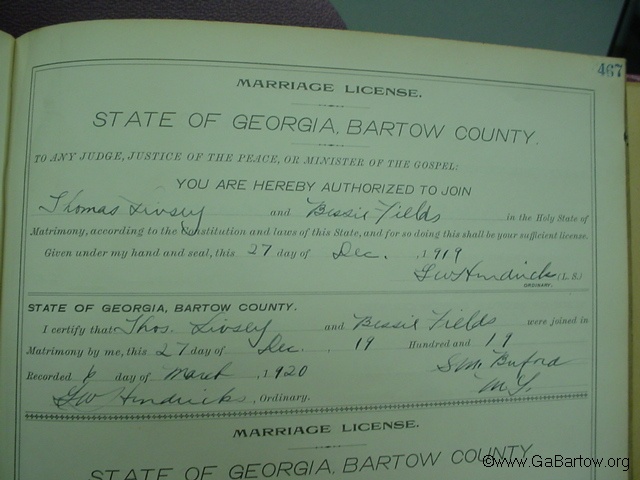 467
MARRIAGE LICENSE.
STATE OF GEORGIA, BARTOW COUNTY.
TO ANY JUDGE, JUSTICE OF THE PEACE, OR MINISTER OF THE GOSPEL:
YOU ARE HEREBY AUTHORIZED TO JOIN
Thomas Livsey and Bessie Fields in the Holy State of
Matrimony, according to the Constitution and laws of this State, and for so doing this shall be your sufficient license.
Given under my hand and seal, this 27 day of Dec. 1919
GW Hendricks (L. S.)
ORDINARY.
STATE OF GEORGIA, BARTOW COUNTY.
I certify that Thos. Livsey and Bessie Fields were joined in
Matrimony by me, this 27 day of Dec. 19 Hundred and 19
Recorded 6 day of March, 1920 S.M. Buford
GW Hendricks, Ordinary.
MARRIAGE LICENSE.
STATE OF GEORGIA, BARTOW COUNTY
©www.GaBartow.org